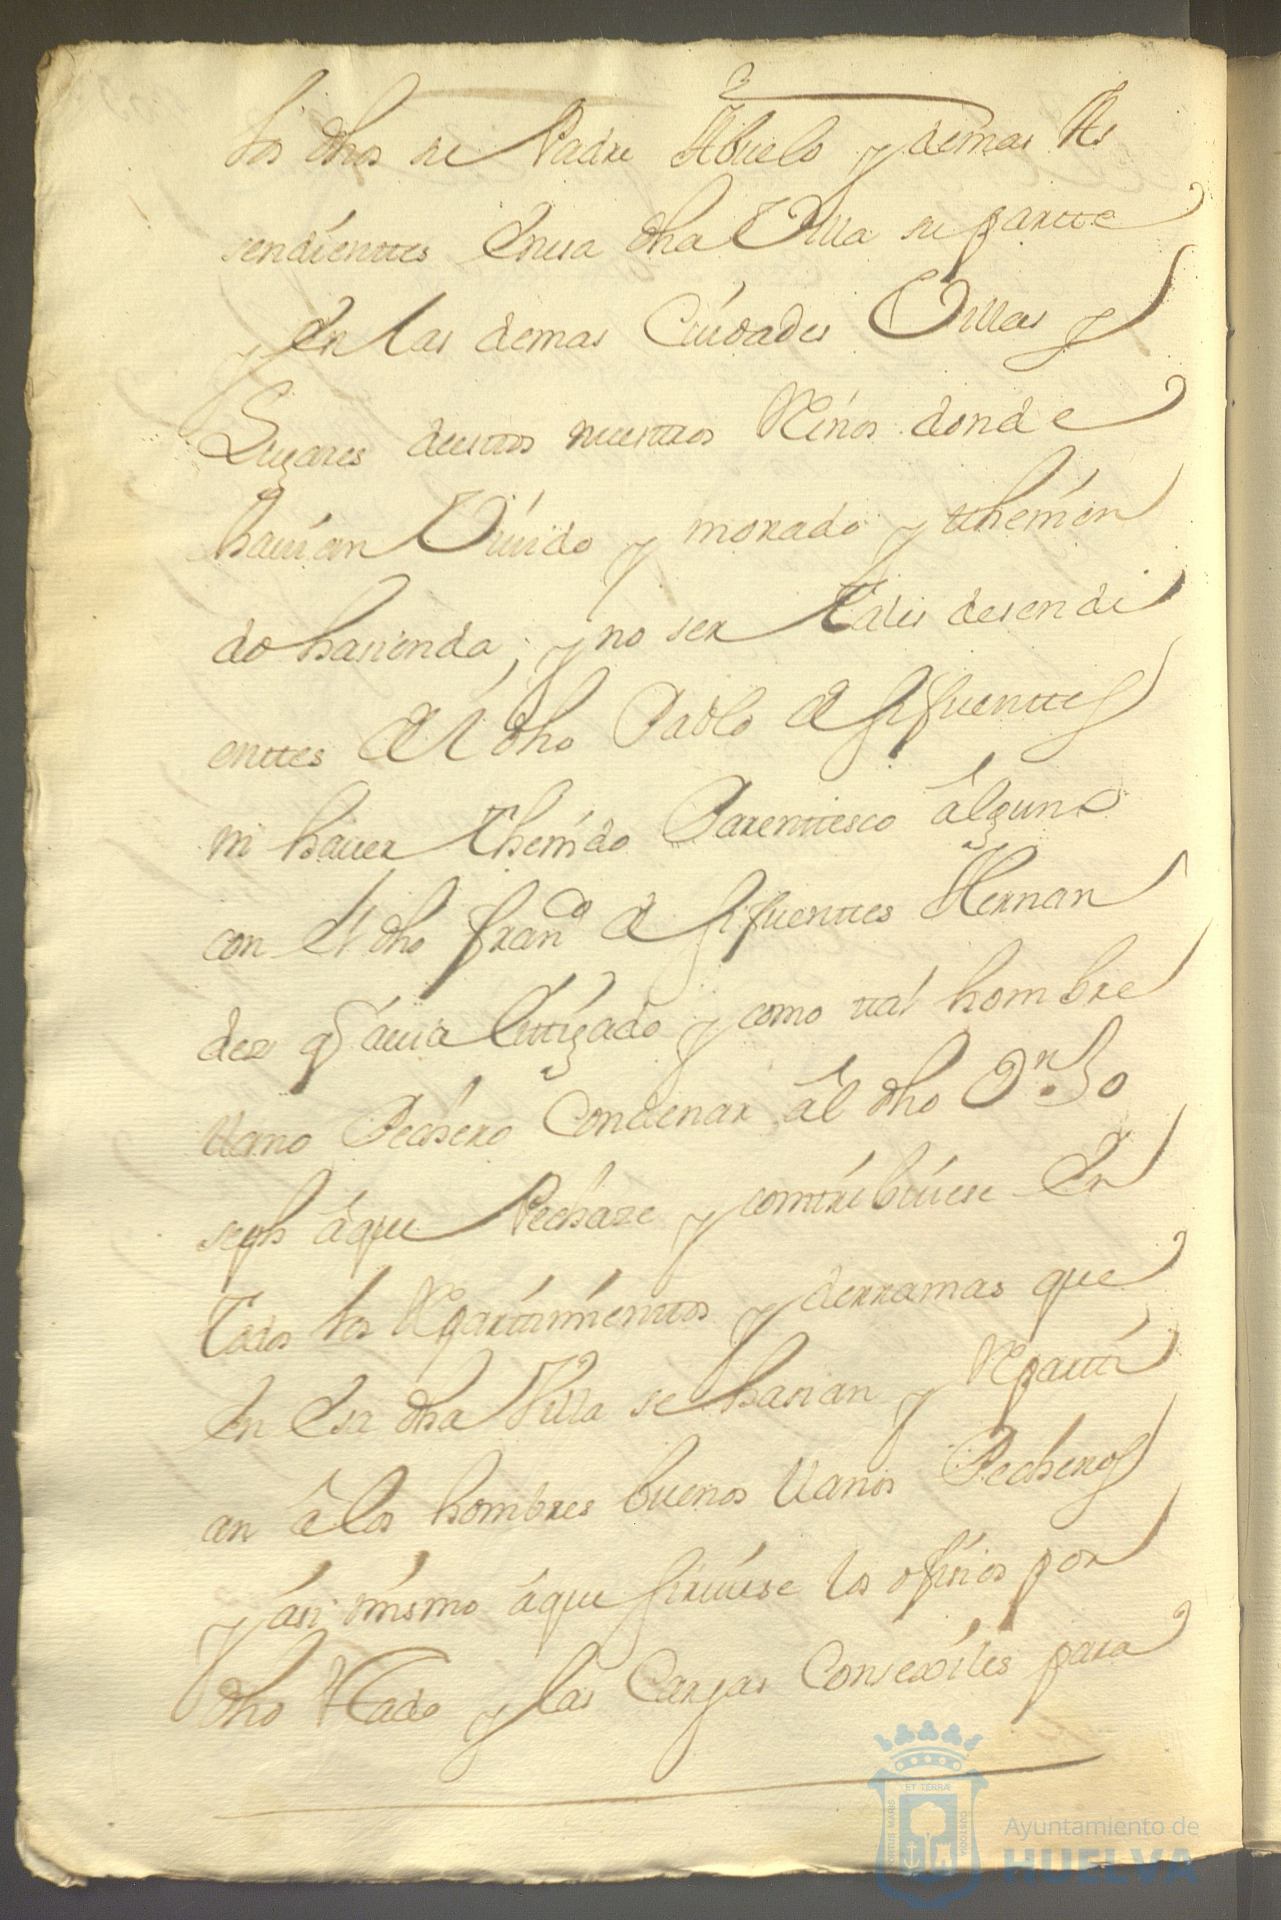 los dhos su Padre Abuelo y demas As
sendienttes en esa dha Villa su partte
y en las demas Ciudades Villas y
Lugares destos nuestros Reinos donde
havian Vivido y morado y thenien
do hasienda, y no ser tales desendi
enttes del dho Pablo de sifuenttes
ni haver thenido Parenttesco alguno
con el dho franco de sifuenttes Hernan
dez q avia littigado y como tal hombre
llano Pechero Condenar al dho Dn Jo
seph a que Pechase y conttribuiese En
todos los Repartimienttos y derramas que
En Esa dha Villa se hasian y Repartti
an a los hombres buenos llanos Pecheros
y asi mismo a que sirviese los ofisios por
dho Estado y las Cargas Consexiles para
ET TERRÆ
PORTUS MARIS
CUSTODIA
Ayuntamiento de
HUELVA